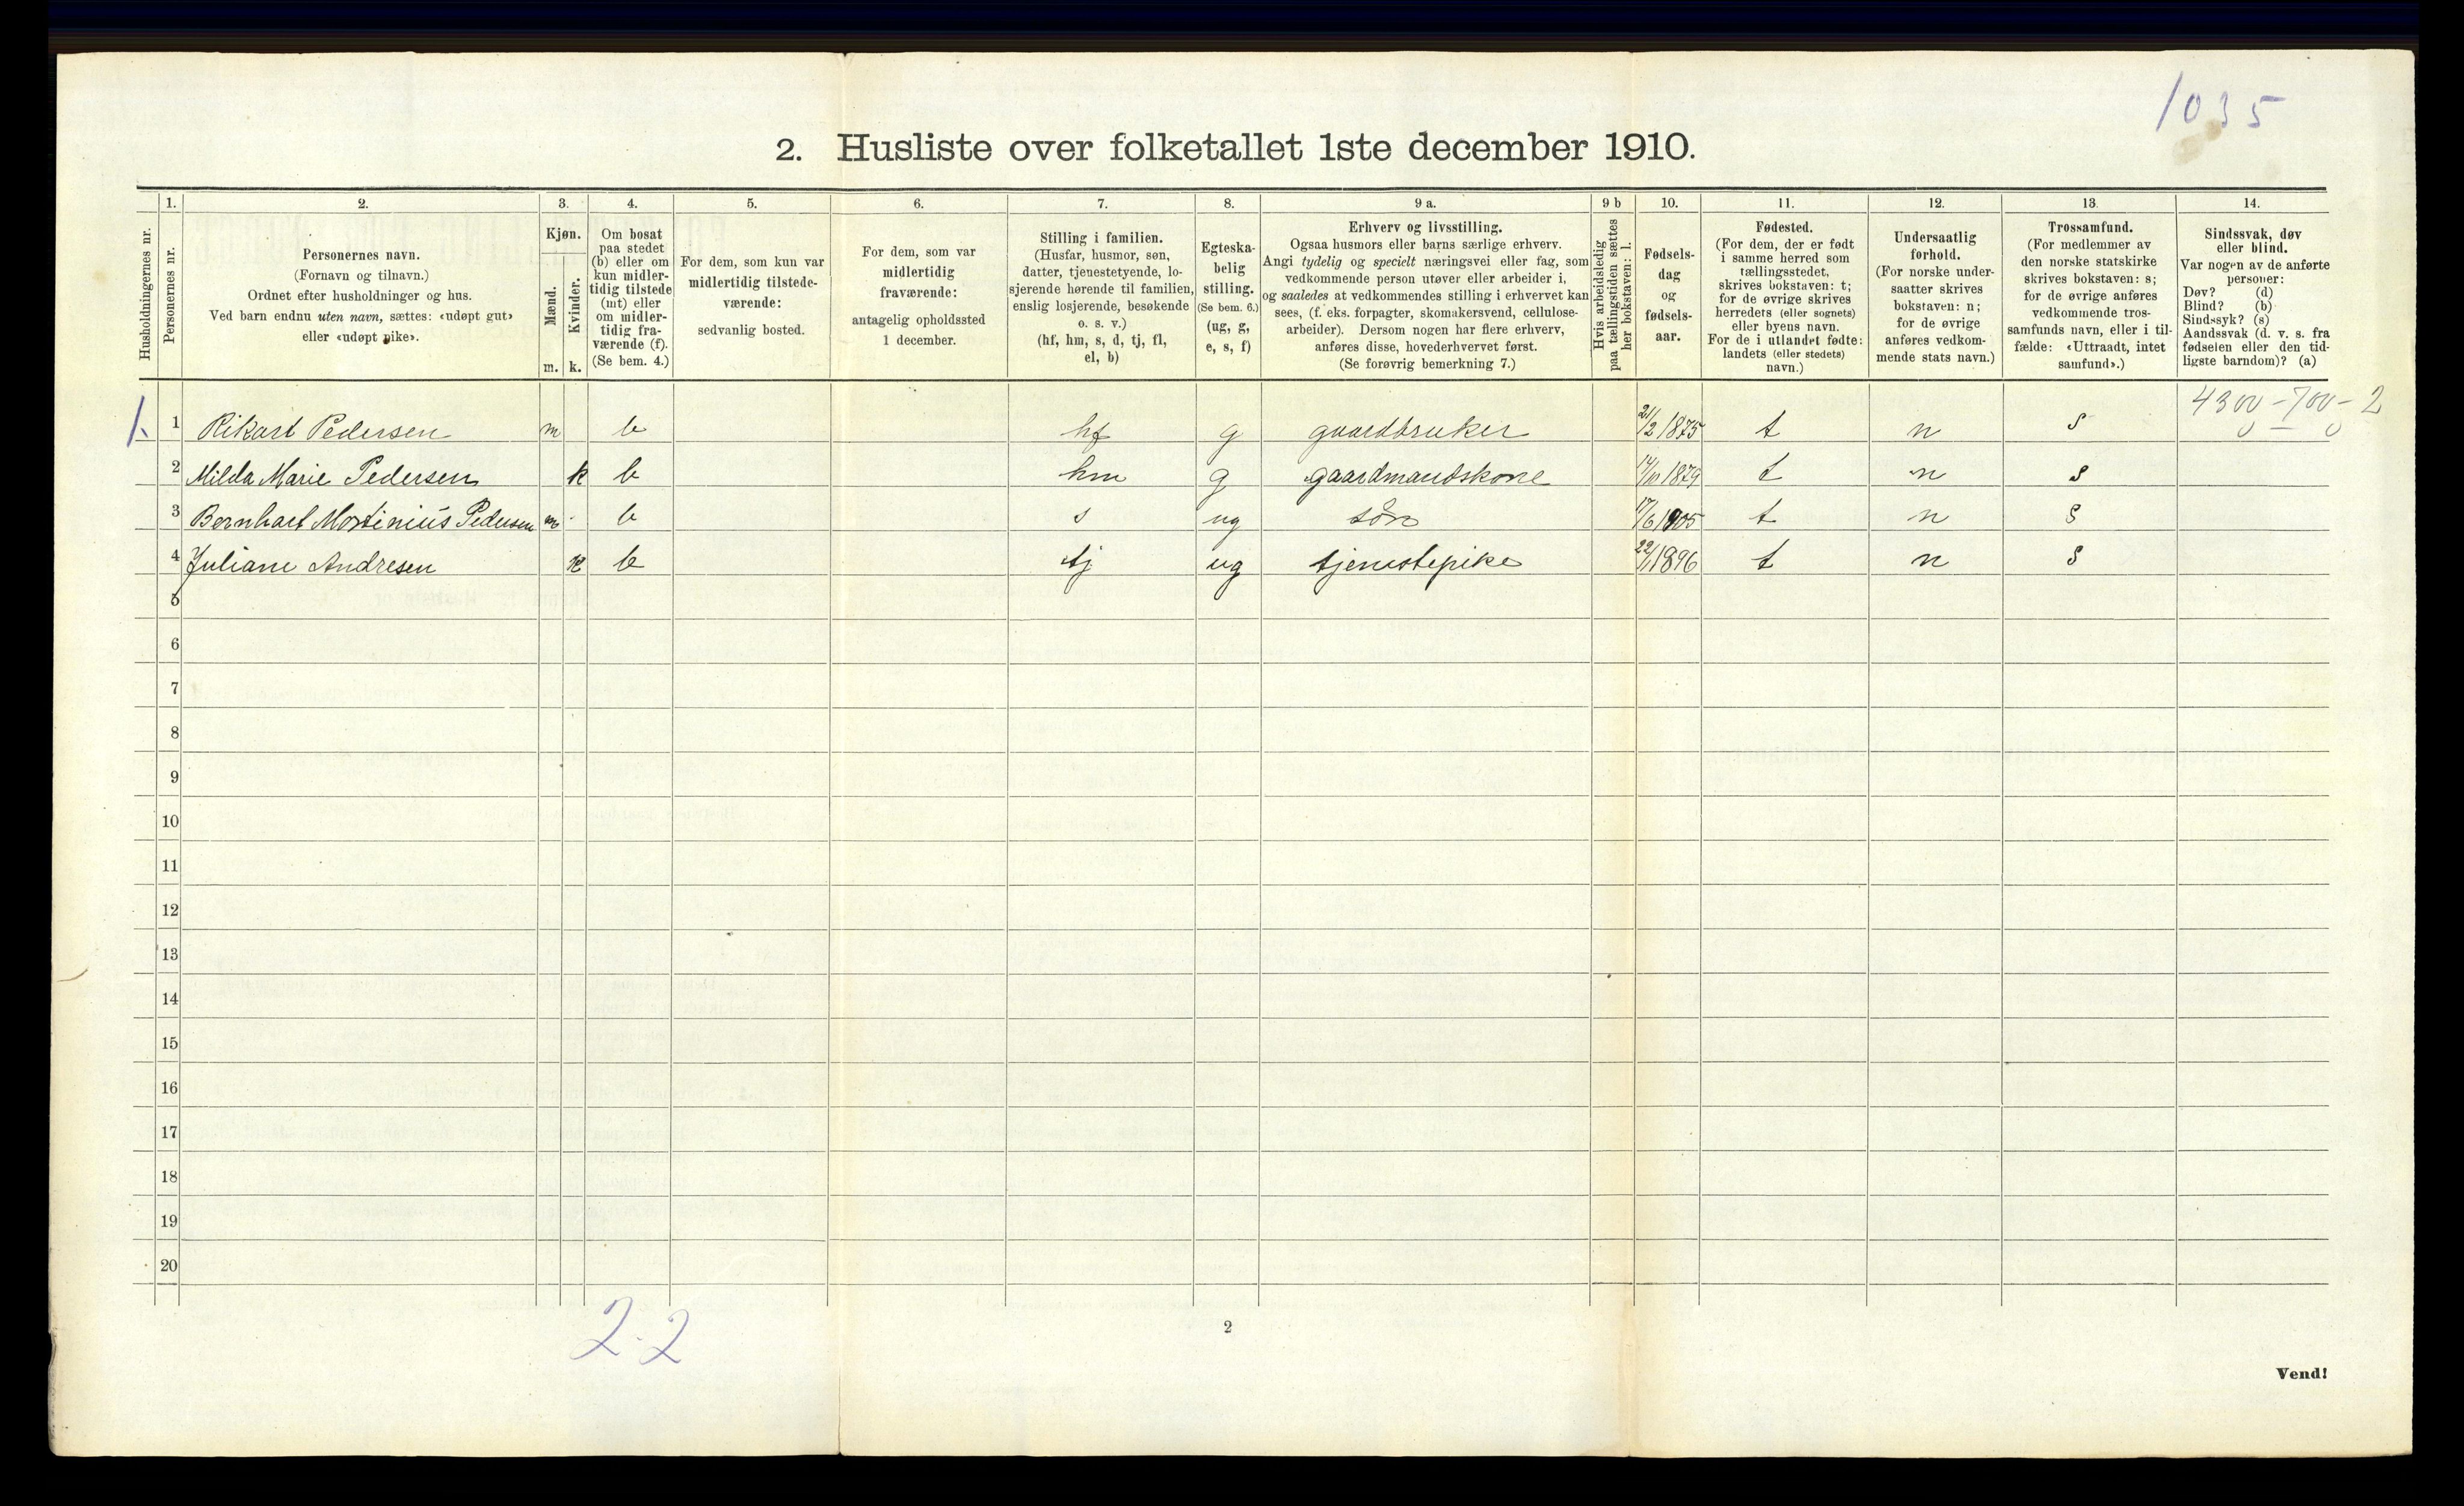 1035
2. Husliste over folketallet 1ste december 1910.
Husholdningernes nr.
1. Personernes nr.
2. Personernes navn.
(Fornavn og tilnavn.)
Ordnet efter husholdninger og hus.
Ved barn endnu uten navn, sættes: «udøpt gut»
eller «udøpt pike».
3. Kjøn.
Mænd. Kvinder.
m. k.
4. Om bosat
paa stedet
(b) eller om
kun midler-
tidig tilstede
(mt) eller
om midler-
tidig fra-
værende (f).
(Se bem. 4.)
5. For dem, som kun var
midlertidig tilstede-
værende:
sedvanlig bosted.
6. For dem, som var
midlertidig
fraværende:
antagelig opholdssted
1 december.
7. Stilling i familien.
(Husfar, husmor, søn,
datter, tjenestetyende, lo-
sjerende hørende til familien,
enslig losjerende, besøkende
o. s. v.)
(hf, hm, s, d, tj, fl,
el, b)
8. Egteska-
belig
stilling.
(Se bem. 6.)
(ug, g,
e, s, f)
9 a. Erhverv og livsstilling.
Ogsaa husmors eller barns særlige erhverv.
Angi tydelig og specielt næringsvei eller fag, som
vedkommende person utøver eller arbeider i,
og saaledes at vedkommendes stilling i erhvervet kan
sees, (f. eks. forpagter, skomakersvend, cellulose-
arbeider). Dersom nogen har flere erhverv,
anføres disse, hovederhvervet først.
(Se forøvrig bemerkning 7.)
9 b Hvis arbeidsledig
paa tællingstiden sættes
her bokstaven: l.
10. Fødsels-
dag
og
fødsels-
aar.
11. Fødested.
(For dem, der er født
i samme herred som
tællingsstedet,
skrives bokstaven: t;
for de øvrige skrives
herredets (eller sognets)
eller byens navn.
For de i utlandet fødte:
landets (eller stedets)
navn.)
12. Undersaatlig
forhold.
(For norske under-
saatter skrives
bokstaven: n;
for de øvrige
anføres vedkom-
mende stats navn.)
13. Trossamfund.
(For medlemmer av
den norske statskirke
skrives bokstaven: s;
for de øvrige anføres
vedkommende tros-
samfunds navn, eller i til-
fælde: «Uttraadt, intet
samfund».)
14. Sindssvak, døv
eller blind.
Var nogen av de anførte
personer:
Døv? (d)
Blind? (b)
Sindssyk? (s)
Aandssvak (d. v. s. fra
fødselen eller den tid-
ligste barndom)? (a)
4300-700-2
1. 1 Rikart Pedersen m b hf g gaardbruker 21/2 1875 t n s
2 Milda Marie Pedersen k b hm g gaardmandskone 1879 t n s
3 Bernhart Mortinius Pedersen m b s ug søn 17/6 1905 t n s
4 Juliane Andresen k b tj ug tjenestepike 1896 t n s
5
6
7
8
9
10
11
12
13
14
15
16
17
18
19
20
2-2
2
Vend!